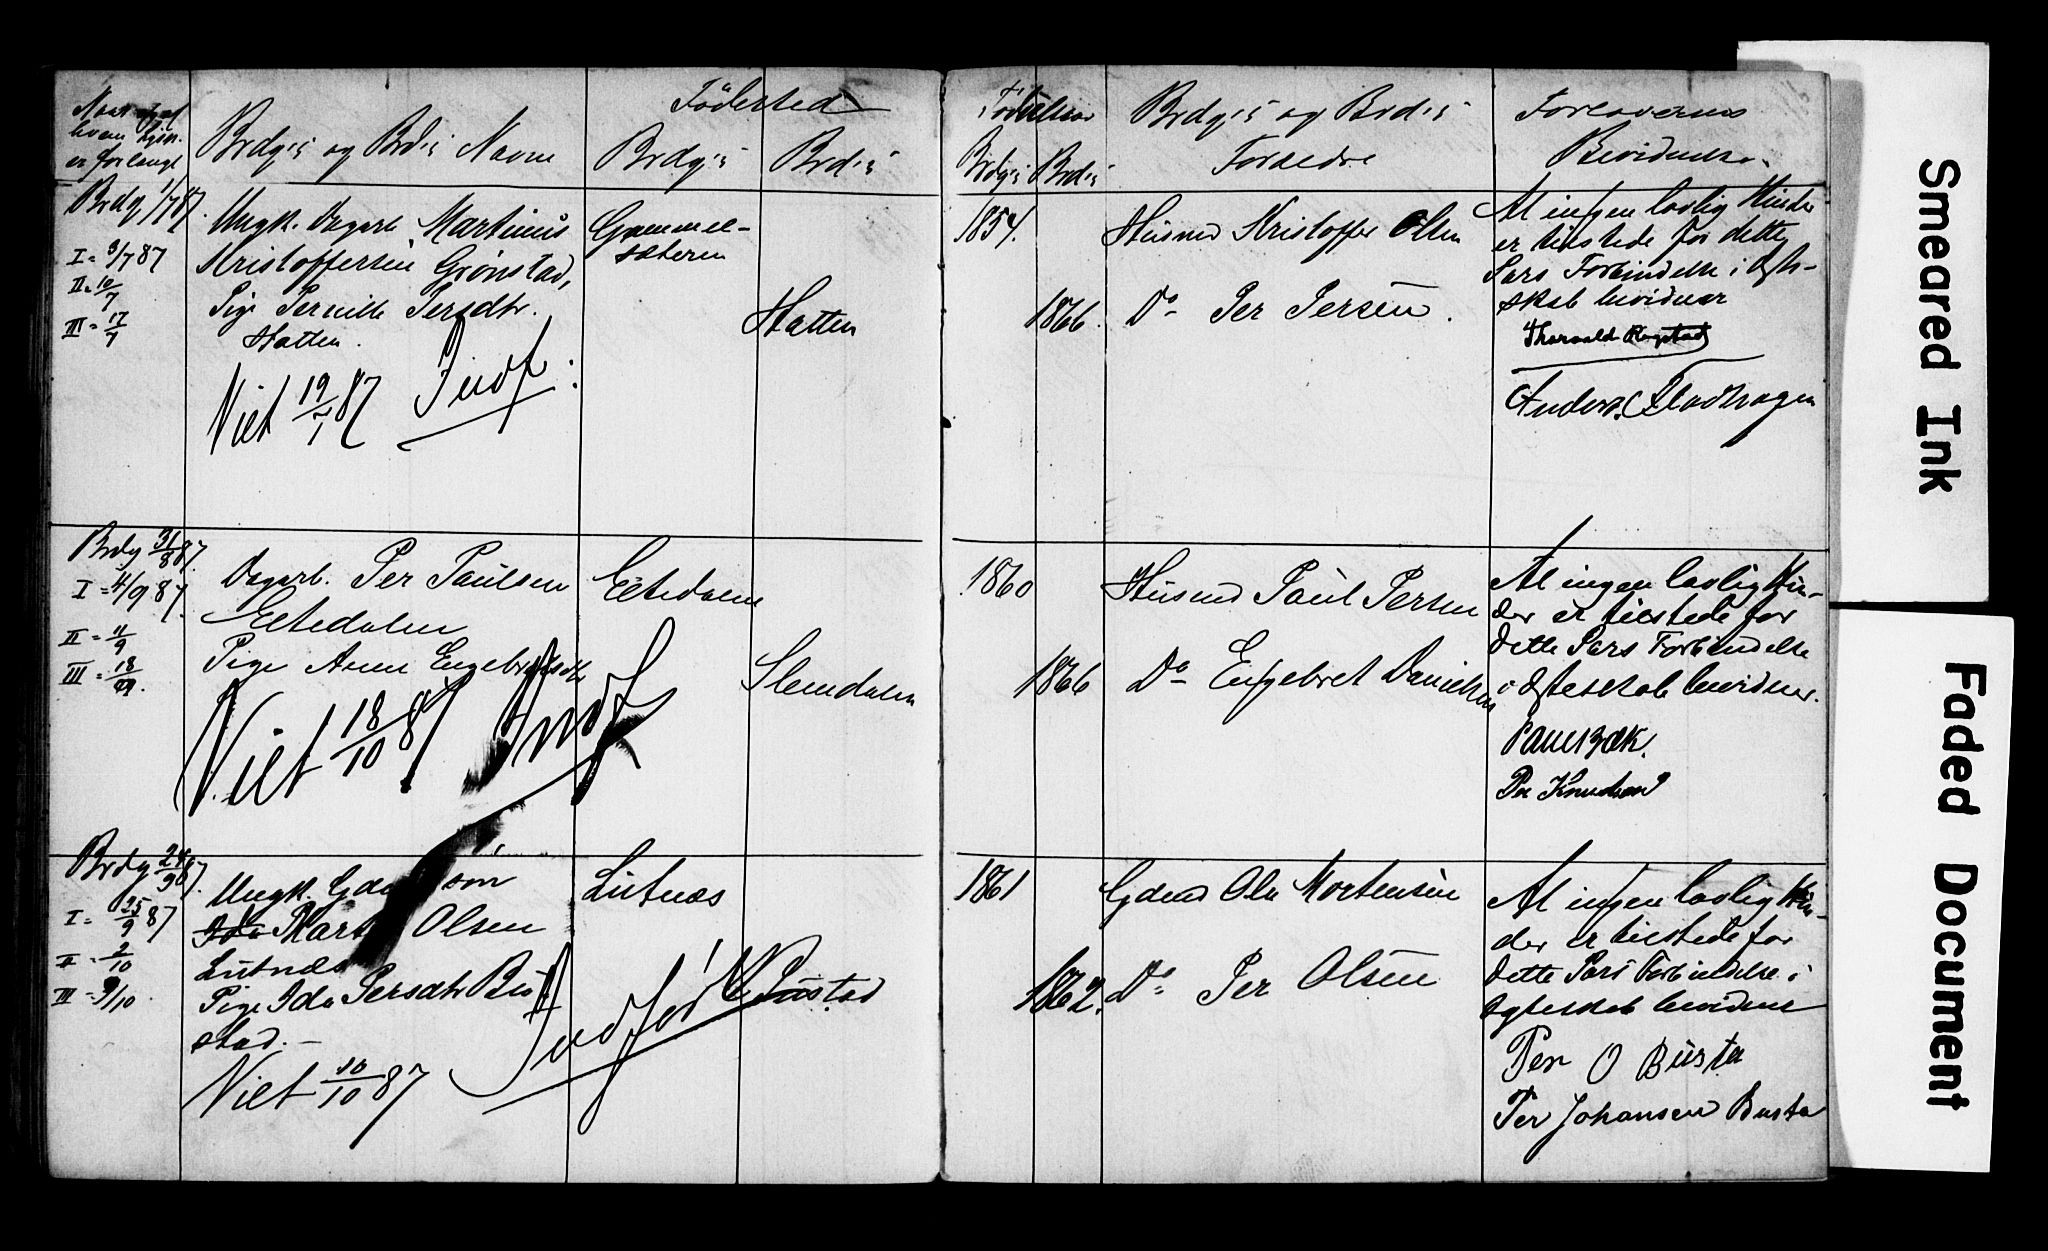 Naar og af
hvem Lysn.
er forlangt
Brdg.s og Brd.s Navne
Fødested
Brdg.s
Brd.s
Fødselsaar
Brdg.s
Brd.s
Brdg.s og Brd.s
Forældre
Forlovernes
Bevidnelse.
Brdg. 1/7 87.
I = 3/7 87
II = 10/7
III = 17/7
Ungk. Dagarb. Martinus
Kristoffersen Grønstad,
Pige Pernille Persdtr.
Hatten.
Viet 19/7 87 Indf:
Gammel-
sæteren
Hatten
1854.
1866.
Husmd Kristoffer Olsen
Do Per Persen.
At ingen lovlig Hinder
er tilstede for dette
Pars Forbindelse i Ægte-
skab bevidner
Thorvald Rogstad
Anders Flodhagen
Brdg 31/8 87.
I = 4/9 87.
II = 11/9
III = 18/9.
Dagarb. Per Paulsen
Eltedalen
Pige Anne Engebretsdtr
Viet 18/10 87 Indf
Eltedalen
Slemdalen
1860
1866
Husmd Paul Persen
Do Engebret Danielsen
At ingen lovlig Hin-
der er tilstede for
dette Pars Forbindelse
i Ægteskab bevidner.
Paul Bæk.
Per Knudsen
Brdg 24/9 87.
I = 25/9 87
II = 2/10
III = 9/10.
Ungk. Gdm søn
Ida Mart Olsen
Lutnæs
Pige Ida Persdtr Bu
stad.
Viet 10/10 87 Indført
Lutnæs
Bustad
1861
1862.
Gdmd Ole Mortensen
Do Per Olsen
At ingen lovlig Hin-
der er tilstede for
dette Pars Forbindelse i
Ægteskab bevidner
Per O Busta
Per Johansen Busta
Smeared Ink
Faded Document